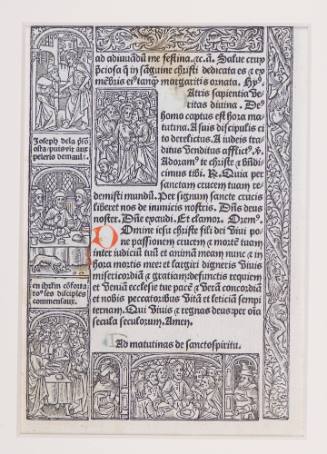 ad adiuuãdũ me festina. ꝛc. añ. Salue crux
p̃ciosa q̃ in sãguine christi dedicata es ⁊ ex
mẽbris eiꝰ tanq̃ margaritis ornata. Hyꝰ.
Atris sapientia ve-
ritas diuina. Deꝰ
homo captus est hora ma
tutina. A suis discipulis ci
to derelictus. A iudeis tra
ditus venditus afflictꝰ. ℣.
Adoramꝰ te christe ⁊ bñdi-
cimus tibi. R. Quia per
sanctam crucem tuam re-
demisti mundũ. Per signum sancte crucis
liberet nos de inimicis nostris. Dñs deus
noster. Dñe exaudi. Et clamor. Oremꝰ.
Omine iesu christe fili dei viui po
ne passionem crucem ⁊ mortẽ tuam
inter iudiciũ tuũ et animã meam nunc ⁊ in
hora mortis mee: et largiri digneris viuis
misericordiã ⁊ gratiam: defunctis requiem
et veniã ecclesie tue pacẽ ⁊ verã concordiã
et nobis peccatoribus vitã et leticiã sempi
ternam. Qui viuis ⁊ regnas deus: per oĩa
secula seculorum. Amen.
Ad matutinas de sanctospiritu.
Joseph dela
les disciples